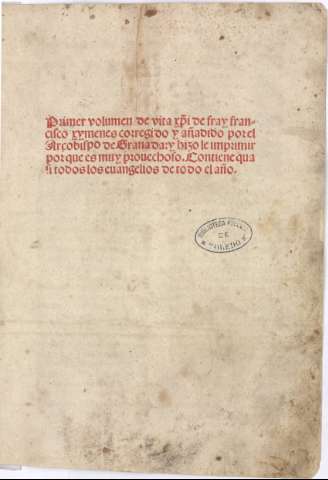 Primer volumen de vita xp̄i de fray fran-
cisco xymenes corregido y añadido por el
Arçobispo de Granada: y hizo le imprimir
por que es muy prouechoso. Contiene qua
si todos los euangelios de todo el año.
BIBLIOTECA
DE
TOLEDO